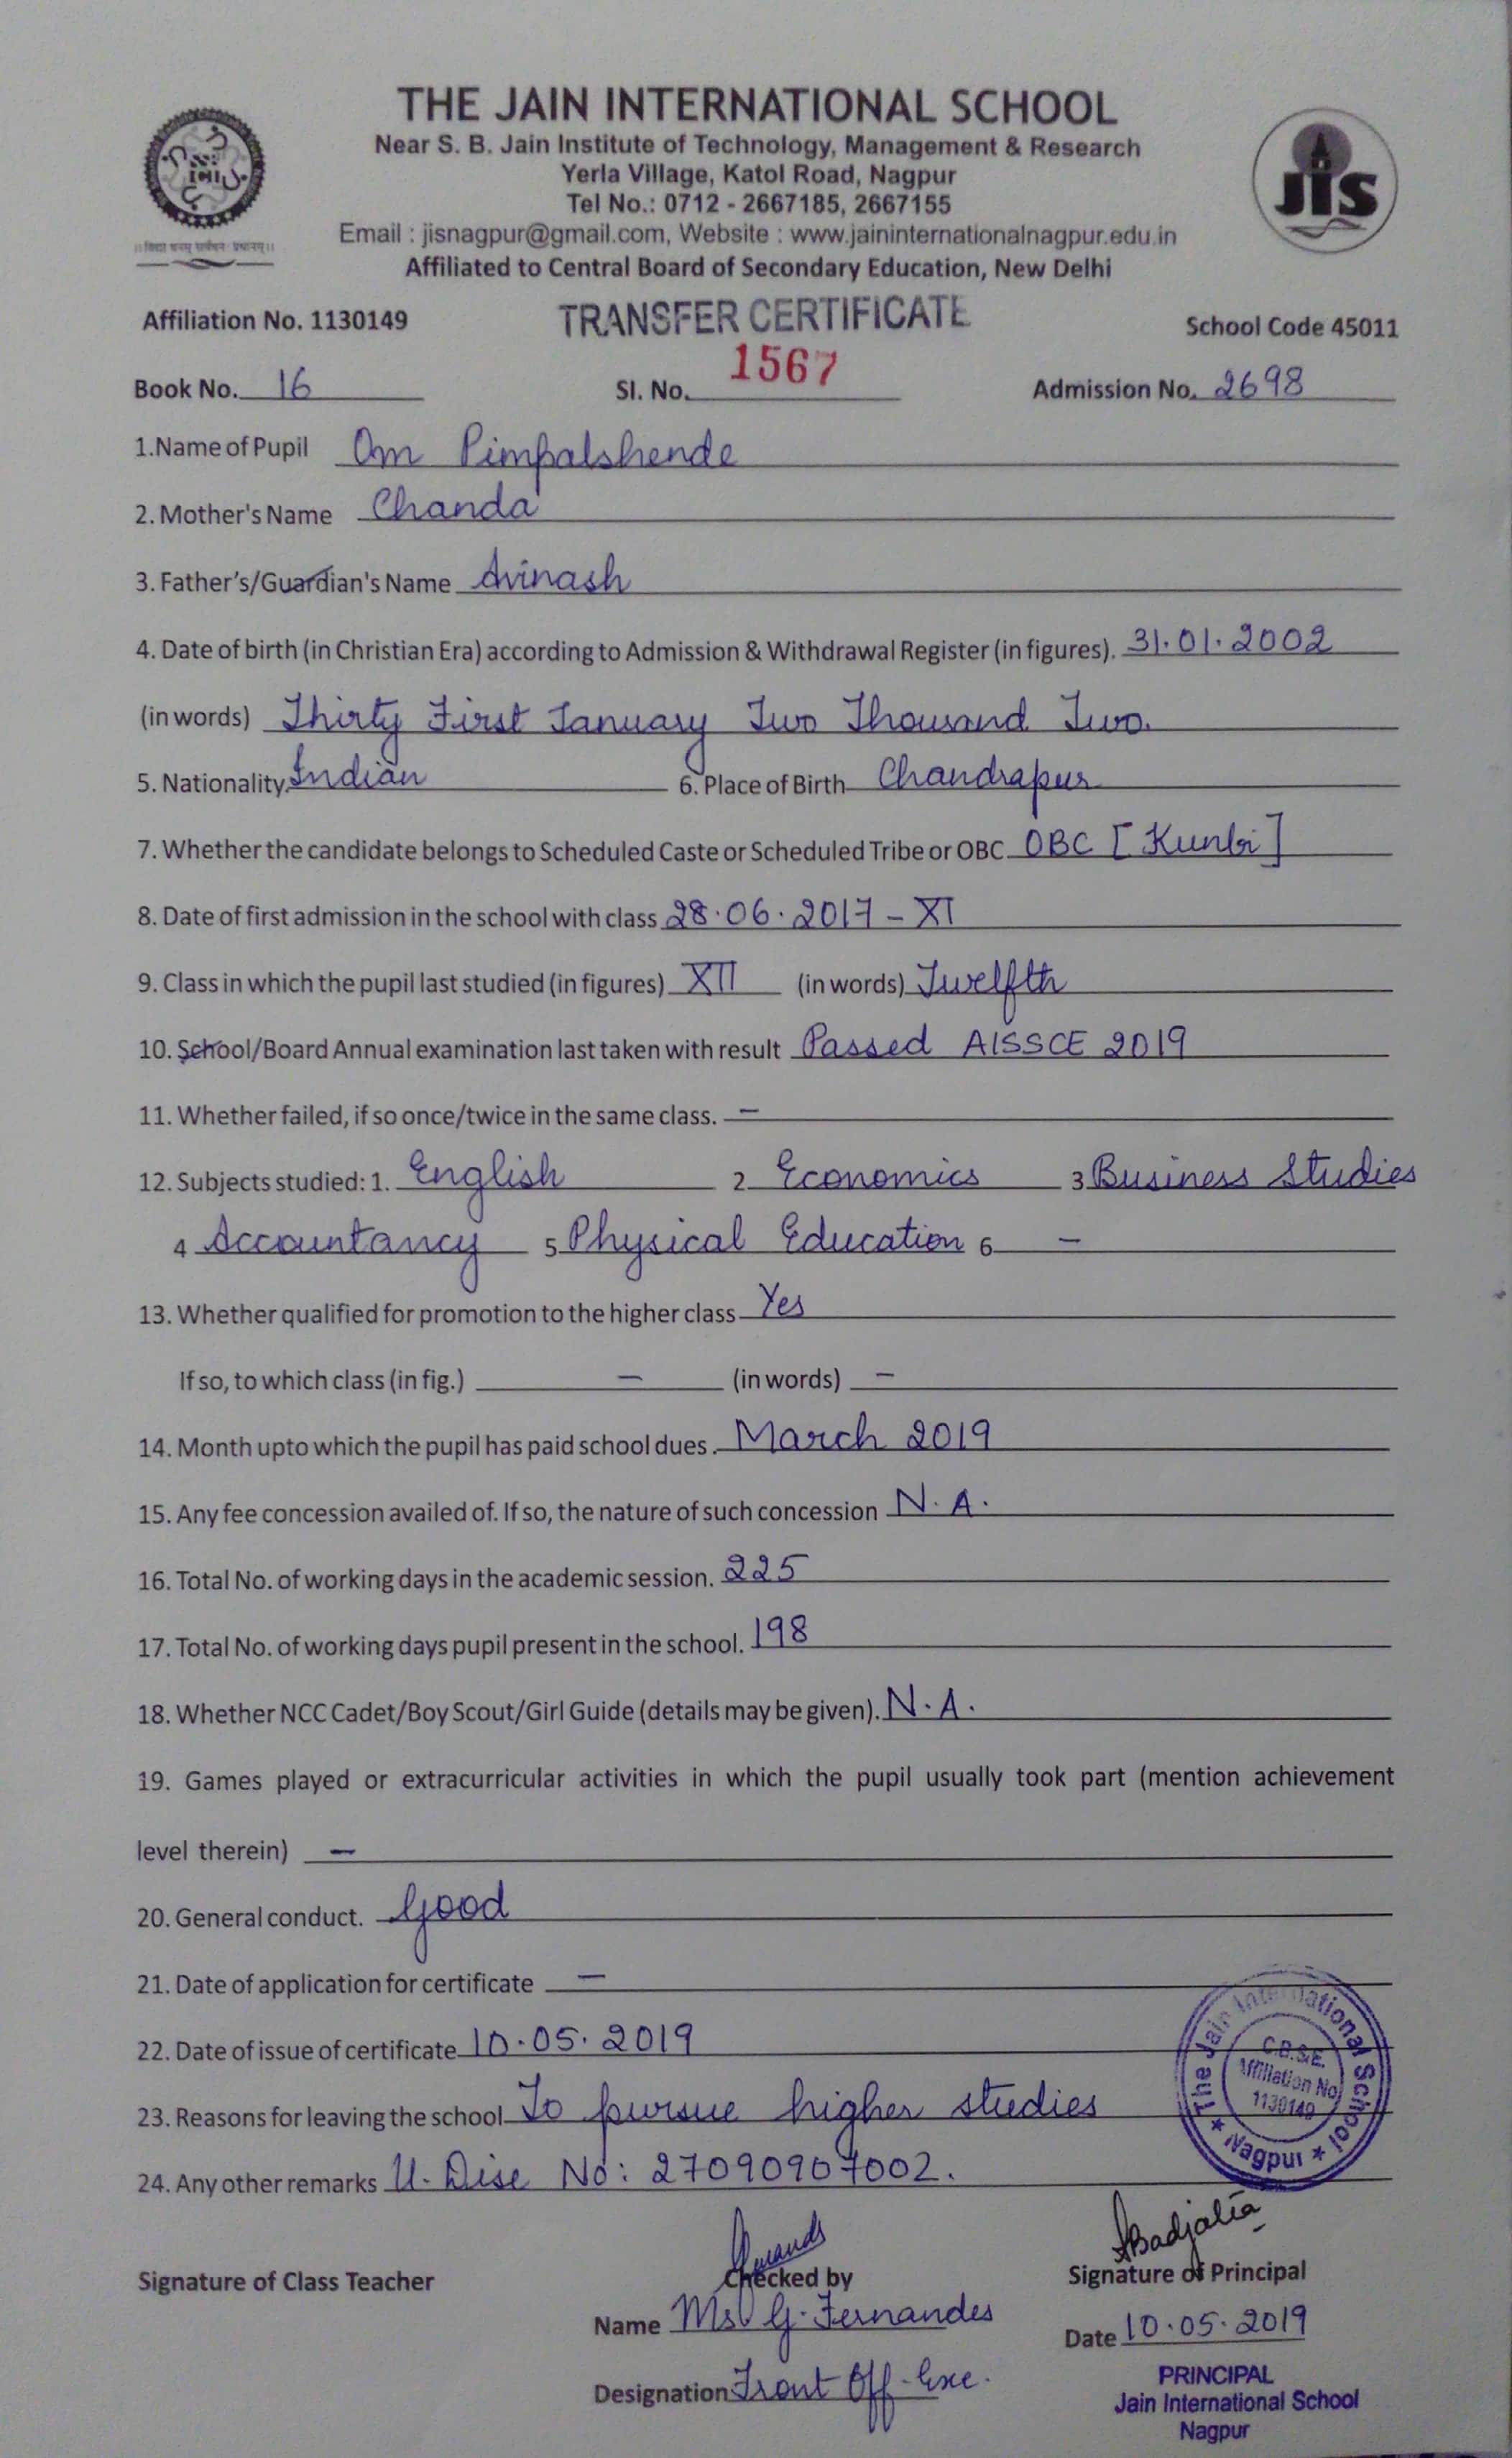 THE JAIN INTERNATIONAL SCHOOL
Near S. B. Jain Institute of Technology, Management & Research
Yerla Village, Katol Road, Nagpur
Tel No.: 0712 - 2667185, 2667155
Email : jisnagpur@gmail.com, Website : www.jaininternationalnagpur.edu.in
Affiliated to Central Board of Secondary Education, New Delhi
JIS
Affiliation No. 1130149 TRANSFER CERTIFICATE School Code 45011
Book No. 16 Sl. No. 1567 Admission No. 2698
1.Name of Pupil Om Pimpalshende
2. Mother's Name Chanda
3. Father's/Guardian's Name Avinash
4. Date of birth (in Christian Era) according to Admission & Withdrawal Register (in figures). 31.01.2002
(in words) Thirty First January Two Thousand Two.
5. Nationality. Indian 6. Place of Birth Chandrapur
7. Whether the candidate belongs to Scheduled Caste or Scheduled Tribe or OBC OBC [Kunbi]
8. Date of first admission in the school with class 28.06.2017 - XI
9. Class in which the pupil last studied (in figures) XII (in words) Twelfth
10. School/Board Annual examination last taken with result Passed AISSCE 2019
11. Whether failed, if so once/twice in the same class. -
12. Subjects studied: 1. English 2 Economics 3 Business Studies
4 Accountancy 5 Physical Education 6 -
13. Whether qualified for promotion to the higher class Yes
If so, to which class (in fig.) - (in words) -
14. Month upto which the pupil has paid school dues. March 2019
15. Any fee concession availed of. If so, the nature of such concession N.A.
16. Total No. of working days in the academic session. 225
17. Total No. of working days pupil present in the school. 198
18. Whether NCC Cadet/Boy Scout/Girl Guide (details may be given). N.A.
19. Games played or extracurricular activities in which the pupil usually took part (mention achievement
level therein) -
20. General conduct. Good
21. Date of application for certificate -
22. Date of issue of certificate 10.05.2019
23. Reasons for leaving the school To pursue higher studies
24. Any other remarks U-Dise No: 27090907002.
The Jain International School
★ Nagpur ★
C.B.S.E.
Affiliation No
1130149
Signature of Class Teacher Checked by Signature of Principal
Name Ms G. Fernandes Date 10.05.2019
Designation Front Off-Exe.
PRINCIPAL
Jain International School
Nagpur